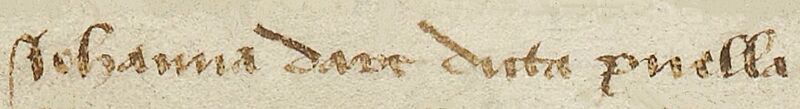 Johanna darc dicta puella